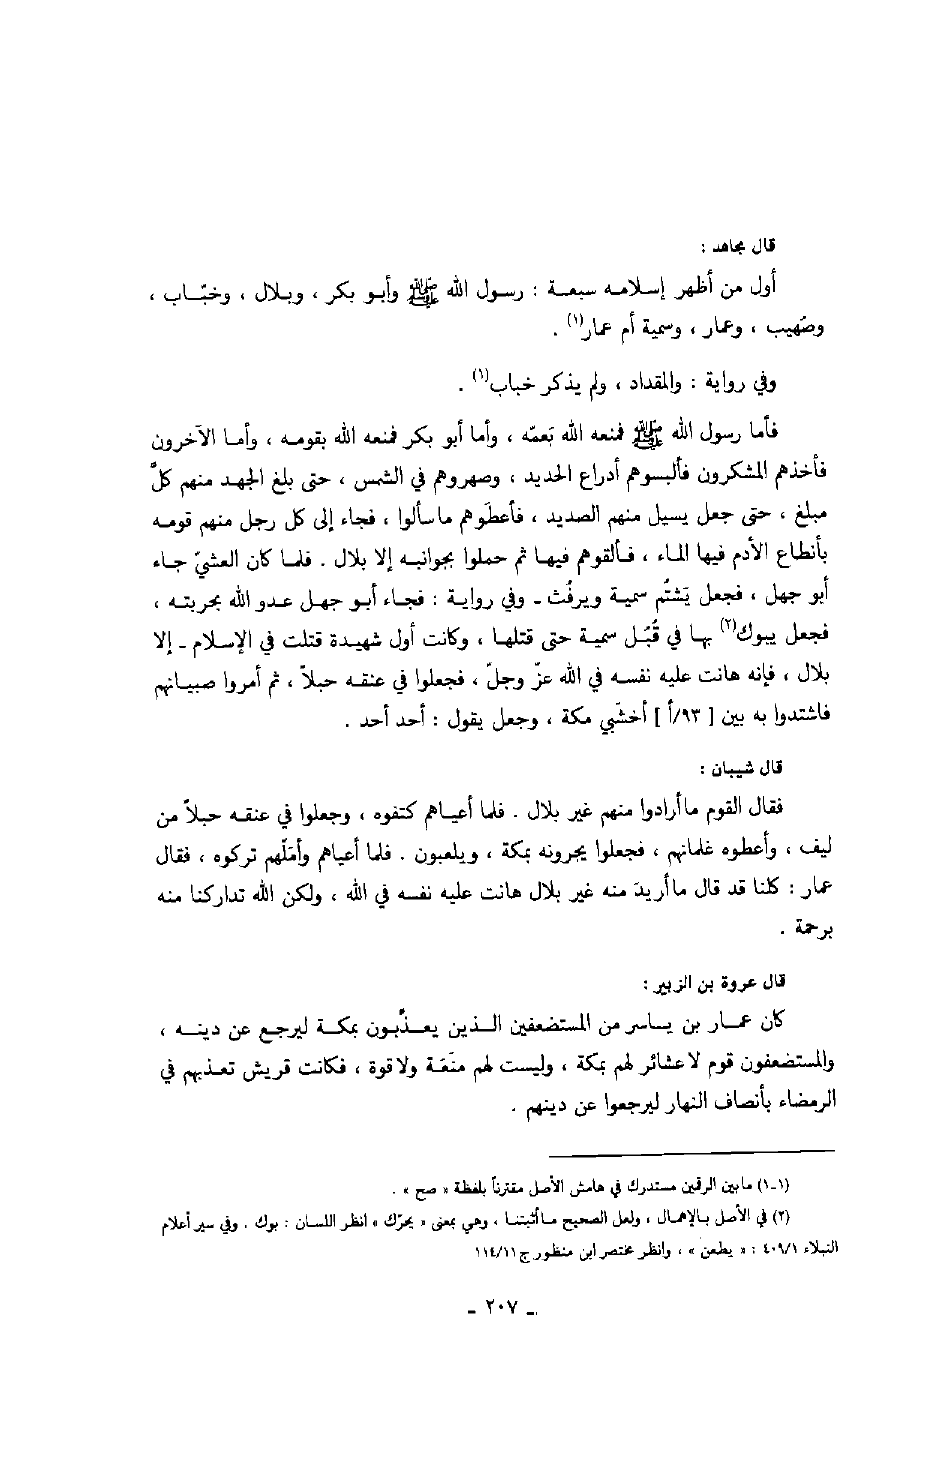 قال مجاهد :
أول من أظهر إسلامه سبعة : رسول الله ﷺ وأبو بكر ، وبلال ، وخبّاب ،
وصُهيب ، وعمار ، وسمية أم عمار(١) .
وفي رواية : والمقداد ، ولم يذكر خباب(١) .
فأما رسول الله ﷺ فمنعه الله بَعمّه ، وأما أبو بكر فمنعه الله بقومه ، وأما الآخرون
فأخذهم المشكرون فألبسوهم أدراع الحديد ، وصهروهم في الشمس ، حتى بلغ الجهد منهم كلَّ
مبلغ ، حتى جعل يسيل منهم الصديد ، فأعطَوهم ماسألوا ، فجاء إلى كل رجل منهم قومه
بأنطاع الأدم فيها الماء ، فألقوهم فيها ثم حملوا بجوانبه إلا بلال . فلما كان العشيّ جاء
أبو جهل ، فجعل يَشتُم سمية ويرفُث ـ وفي رواية : فجاء أبو جهل عدو الله بحربته ،
فجعل يبوك(٢) بها في قُبُل سمية حتى قتلها ، وكانت أول شهيدة قتلت في الإسلام ـ إلا
بلال ، فإنه هانت عليه نفسه في الله عزّ وجلّ ، فجعلوا في عنقه حبلاً ، ثم أمروا صبيانهم
فاشتدوا به بين [ ٩٣/أ ] أخشَبي مكة ، وجعل يقول : أحد أحد .
قال شيبان :
فقال القوم ماأرادوا منهم غير بلال . فلما أعياهم كتفوه ، وجعلوا في عنقه حبلاً من
ليف ، وأعطوه غلمانهم ، فجعلوا يجرونه بمكة ، ويلعبون . فلما أعياهم وأمَلّهم تركوه ، فقال
عمار : كلنا قد قال ماأريدَ منه غير بلال هانت عليه نفسه في الله ، ولكن الله تداركنا منه
برحمة .
قال عروة بن الزبير :
كان عمار بن ياسر من المستضعفين الذين يعذَّبون بمكة ليرجع عن دينه ،
والمستضعفون قوم لاعشائر لهم بمكة ، وليست لهم منَعَة ولاقوة ، فكانت قريش تعذبهم في
الرمضاء بأنصاف النهار ليرجعوا عن دينهم .
(١-١) مابين الرقين مستدرك في هامش الأصل مقترناً بلفظة « صح » .
(٢) في الأصل بالإهمال ، ولعل الصحيح ماأثبتنا ، وهي بمعنى « يحرّك » انظر اللسان : بوك . وفي سير أعلام
النبلاء ٤٠٩/١ : « يطعن » ، وانظر مختصر ابن منظور ج ١١٤/١١
ـ ٢٠٧ ـ